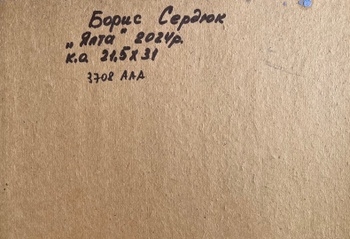 Борис Сердюк
„Ялта" 2024р.
к.о. 21,5х31
3708 ААА